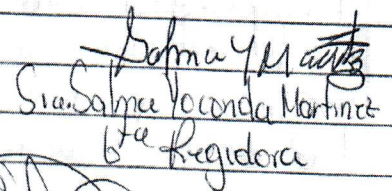 Salma Y Martz
Sra. Salma Yoconda Martinez
6ta Regidora